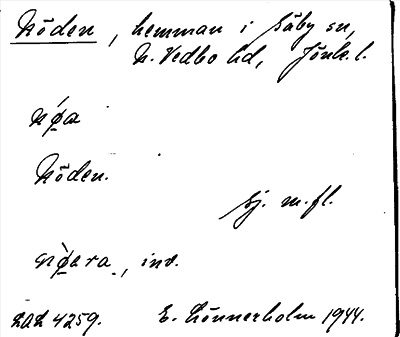 Nöden, hemman i Säby sn,
N. Vedbo hd, Jönk. l.
nǿa
Nöden.
Sj. m. fl.
nø̀ara, inv.
LAL 4259. E. Lönnerholm 1944.